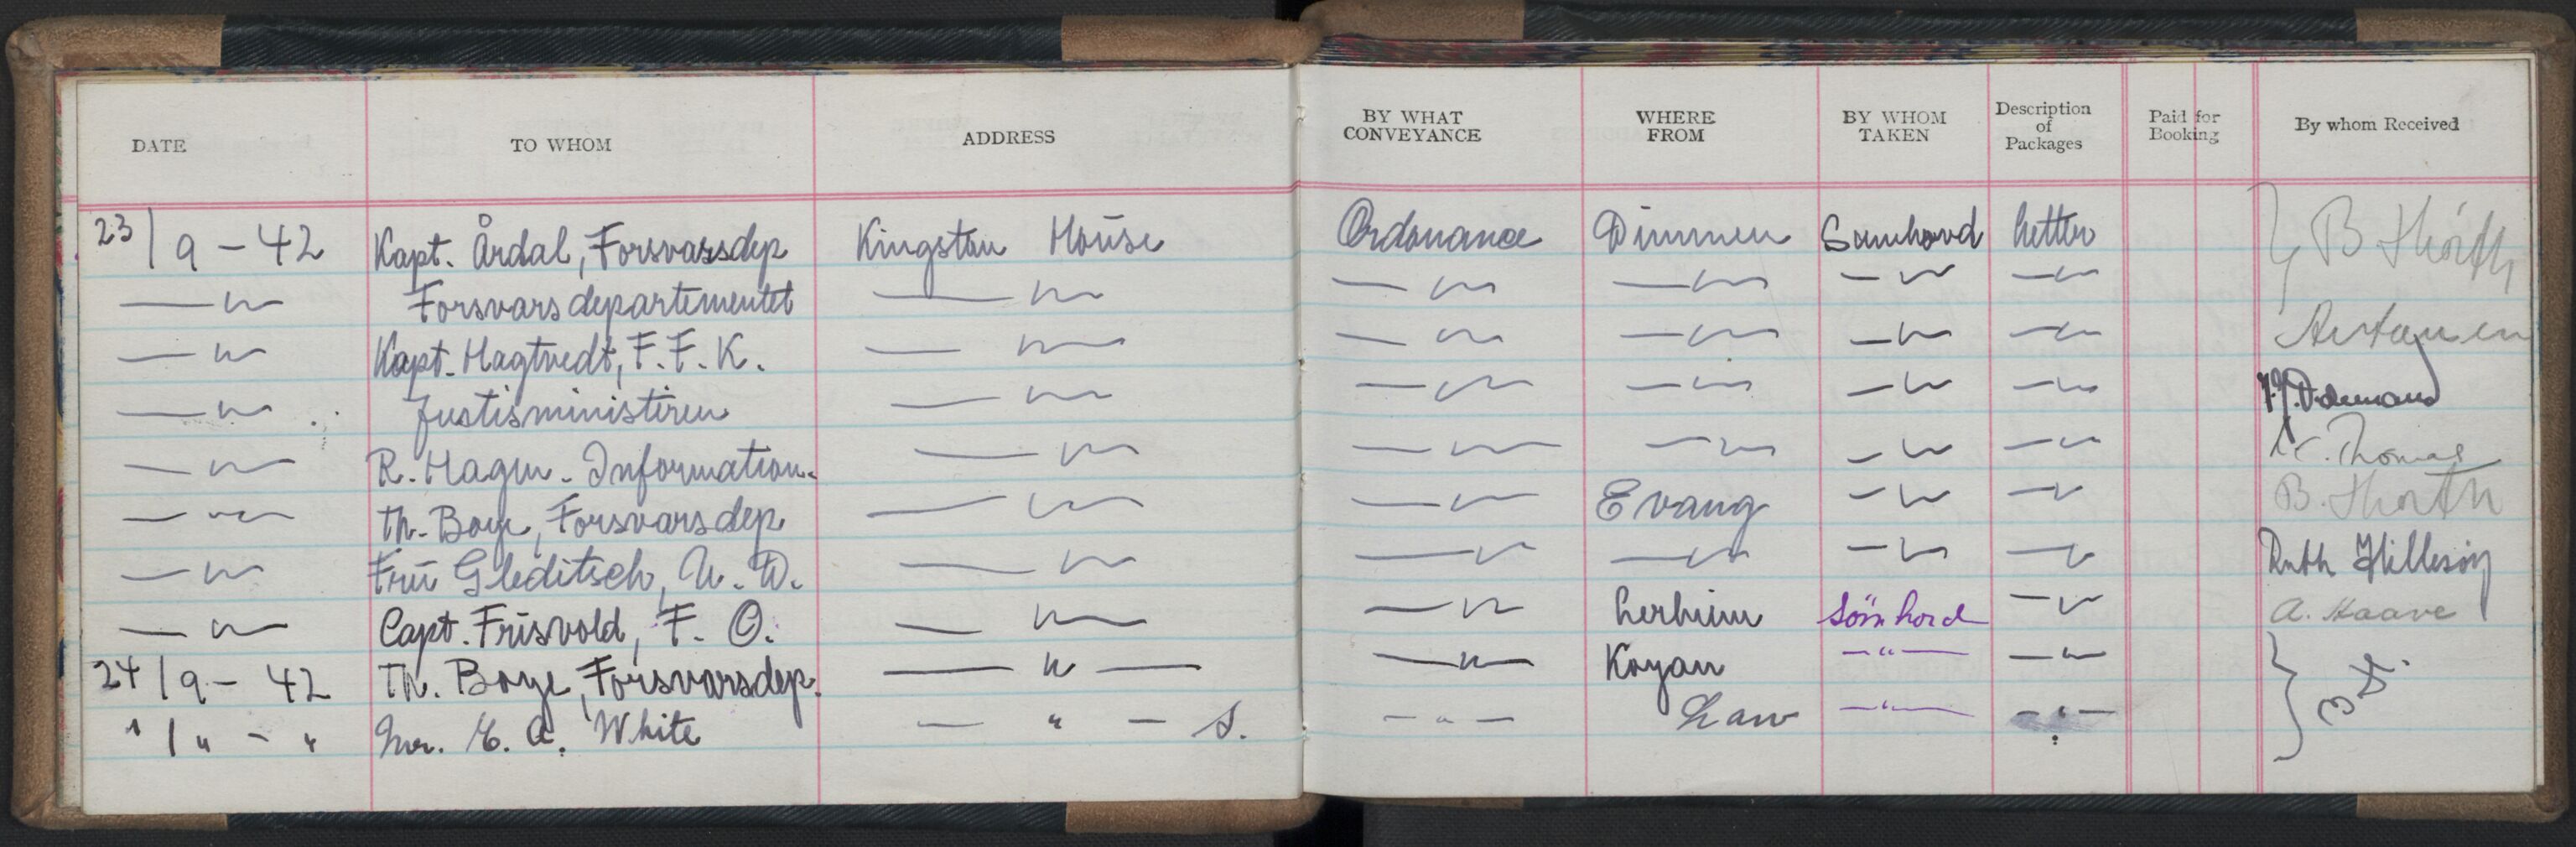 DATE TO WHOM ADDRESS BY WHAT CONVEYANCE WHERE FROM BY WHOM TAKEN Description of Packages Paid for Booking By whom Received
23/9-42 Kapt. Årdal, Forsvarsdep Kingston House Ordonance Dimmen Sumhord letter B Shorth
— " — Forsvarsdepartementet — " — — " — — " — — " — — " —
— " — Kapt. Hagtvedt, F.F.K. — " — — " — — " — — " — — " —
— " — Justisministeren — " — — " — — " — — " — — " —
— " — R. Hagen - Information. — " — — " — — " — — " — — " — Thomas
— " — Th. Boye, Forsvarsdep — " — — " — Evang — " — — " — B. Shorth
— " — Frū Gleditsch, U.D. — " — — " — — " — — " — — " — Ruth Hillesöy
— " — Capt. Frisvold, F.O. — " — — " — Sömhord — " — A. Haave
24/9-42 Th. Boye, Forsvarsdep. — " — — " — Koyan — " — — " —
" / " - " Mr. E. A. White — " — S. — " — Law — " — — " —